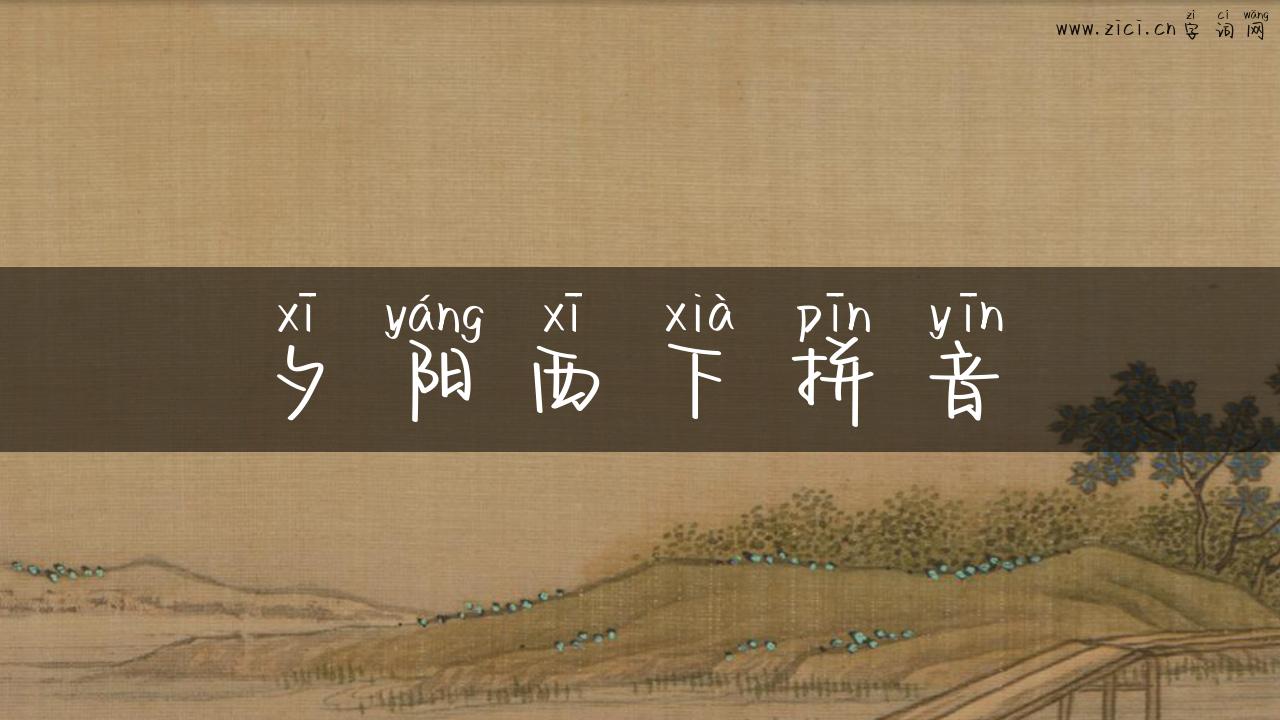 zì cí wǎng
www.zici.cn字词网
xī yáng xī xià pīn yīn
夕阳西下拼音